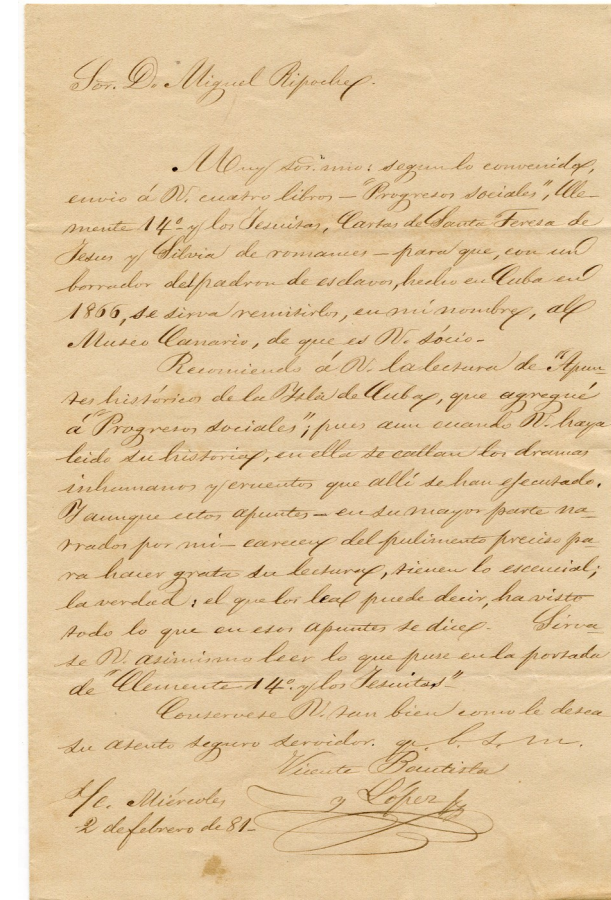 Sor. D. Miguel Ripoche.
Muy sor. mio: segun lo convenido,
envio á V. cuatro libros - "Progresos sociales", Cle-
mente 14º y los Jesuitas, Cartas de Santa Teresa de
Jesus y Silvia de romances - para que, con un
borrador del padron de esclavos, hecho en Cuba en
1866, se sirva remitirlos, en mi nombre, al
Museo Canario, de que es V. sócio -
Recomiendo á V. la lectura de "Apun-
tes históricos de la Ysla de Cuba, que agregué
á "Progresos sociales"; pues aun cuando V. haya
leido su historia, en ella se callan los dramas
inhumanos y cruentos que allí se han ejecutado.
Y aunque estos apuntes - en su mayor parte na-
rrados por mi - carecen del pulimento preciso pa-
ra hacer grata su lectura, tienen lo escencial;
la verdad: el que los lea puede decir, ha visto
todo lo que en esos apuntes se dice - Sirva-
se V. asimismo leer lo que puse en la portada
de "Clemente 14º y los Jesuitas"
Conservese V. tan bien como le desea
su atento seguro servidor. q. b. s. m.
Vicente Bautista
y López
S/c. Miércoles
2 de febrero de 81 -